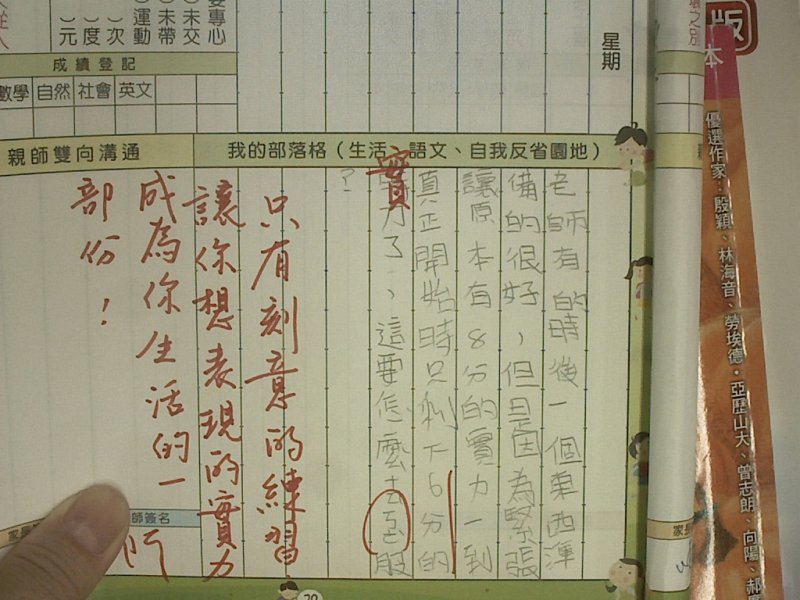 專心
(未交
(未帶
(運動
)次
)度
)元
星期
成績登記
數學 自然 社會 英文
親師雙向溝通
我的部落格(生活、語文、自我反省園地)
老師有的時後一個東西準
備的很好,但是因為緊張
讓原本有8分的實力一到
真正開始時只剩下6分的
實力了,這要怎麼克服
?
實
只有刻意的練習
讓你想表現的實力
成為你生活的一
部份!
師簽名
家長
70
版
本
優選作家:殷穎、林海音、勞埃德·亞歷山大、曾志朗、向陽、郝